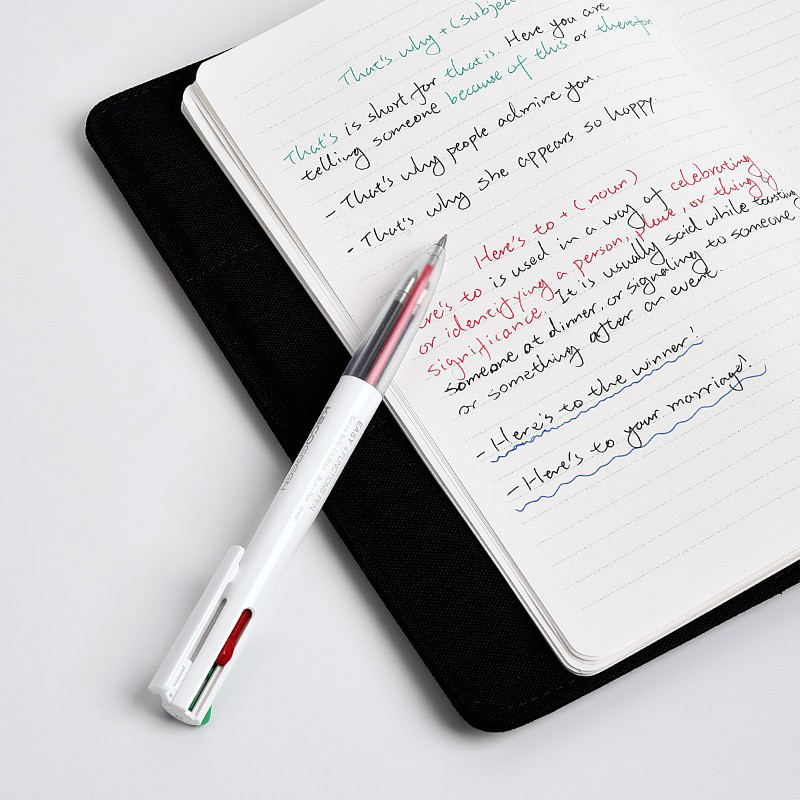 That's why + (subjec
That's is short for that is. Here you are
telling someone because of this or therefor
- That's why people admire you.
- That's why she appears so happy
Here's to + (noun)
ere's to is used in a way of celebrating
or identifying a person, place, or thing of
significance. It is usually said while toasting
someone at dinner, or signaling to someone
or something after an event.
- Here's to the winner!
- Here's to your marriage!
KACOGREEN
EASY 4 FUNCTIONS PEN